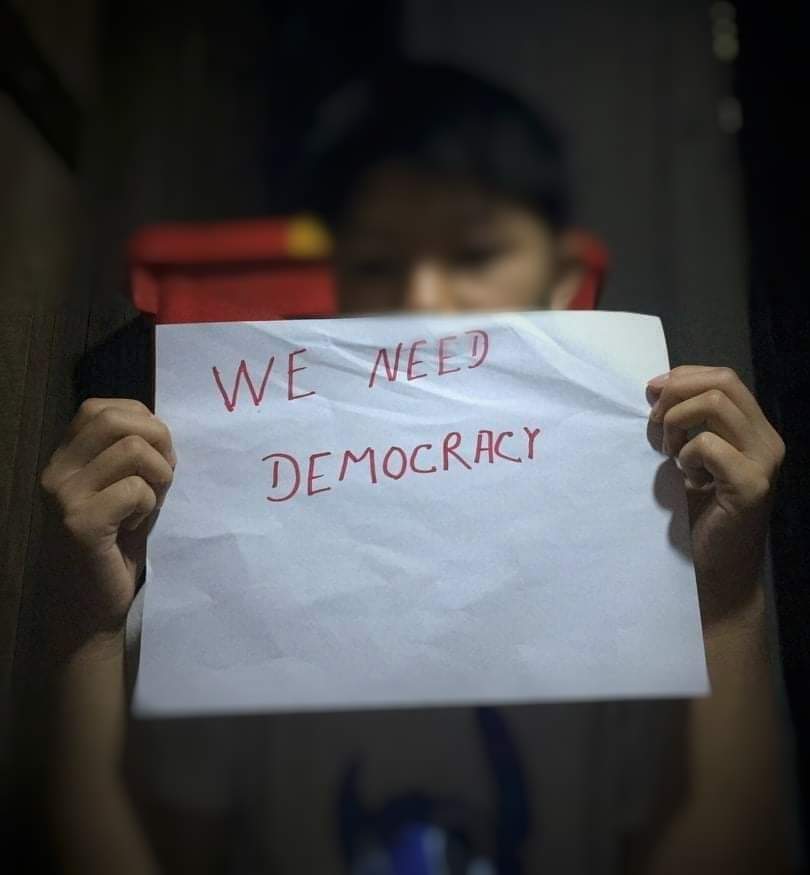 WE NEED
DEMOCRACY